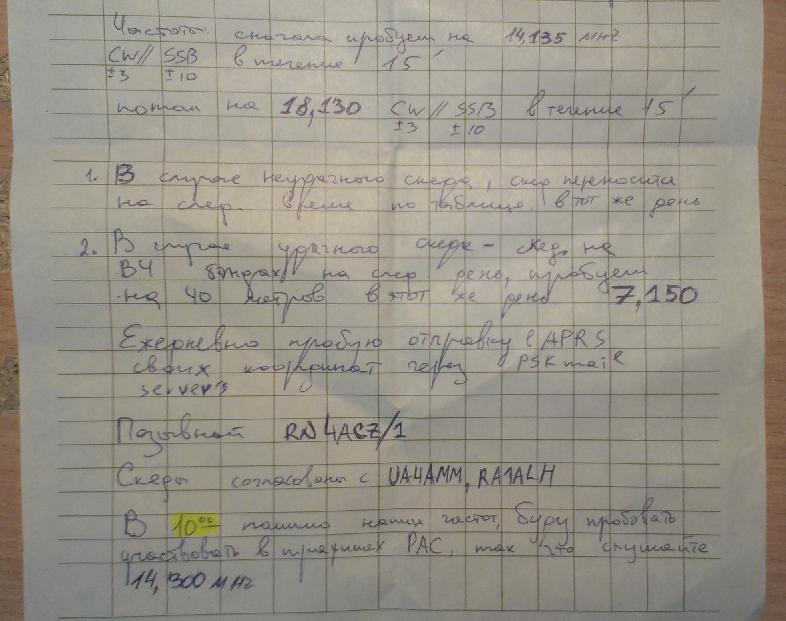 Частоты: сначала пробуем на 14,135 мнг
CW // SSB в течение 15'
±3 ±10
потом на 18,130 CW // SSB в течение 15'
±3 ±10
1. В случае неудачного скеда, скед переносится
на след. время по таблице, в тот же день
2. В случае удачного скеда – скед на
ВЧ бэндах на след день, пробуем
на 40 метров в этот же день 7,150
Ежедневно пробую отправку в APRS
своих координат через PSKmail
server's
Позывной RN4ACZ/1
Скеды согласованы с UA4AMM, RA1ALH
В 10⁰⁰ помимо наших частот, буду пробовать
участвовать в трафиках РАС, так что слушайте
14,300 мнг